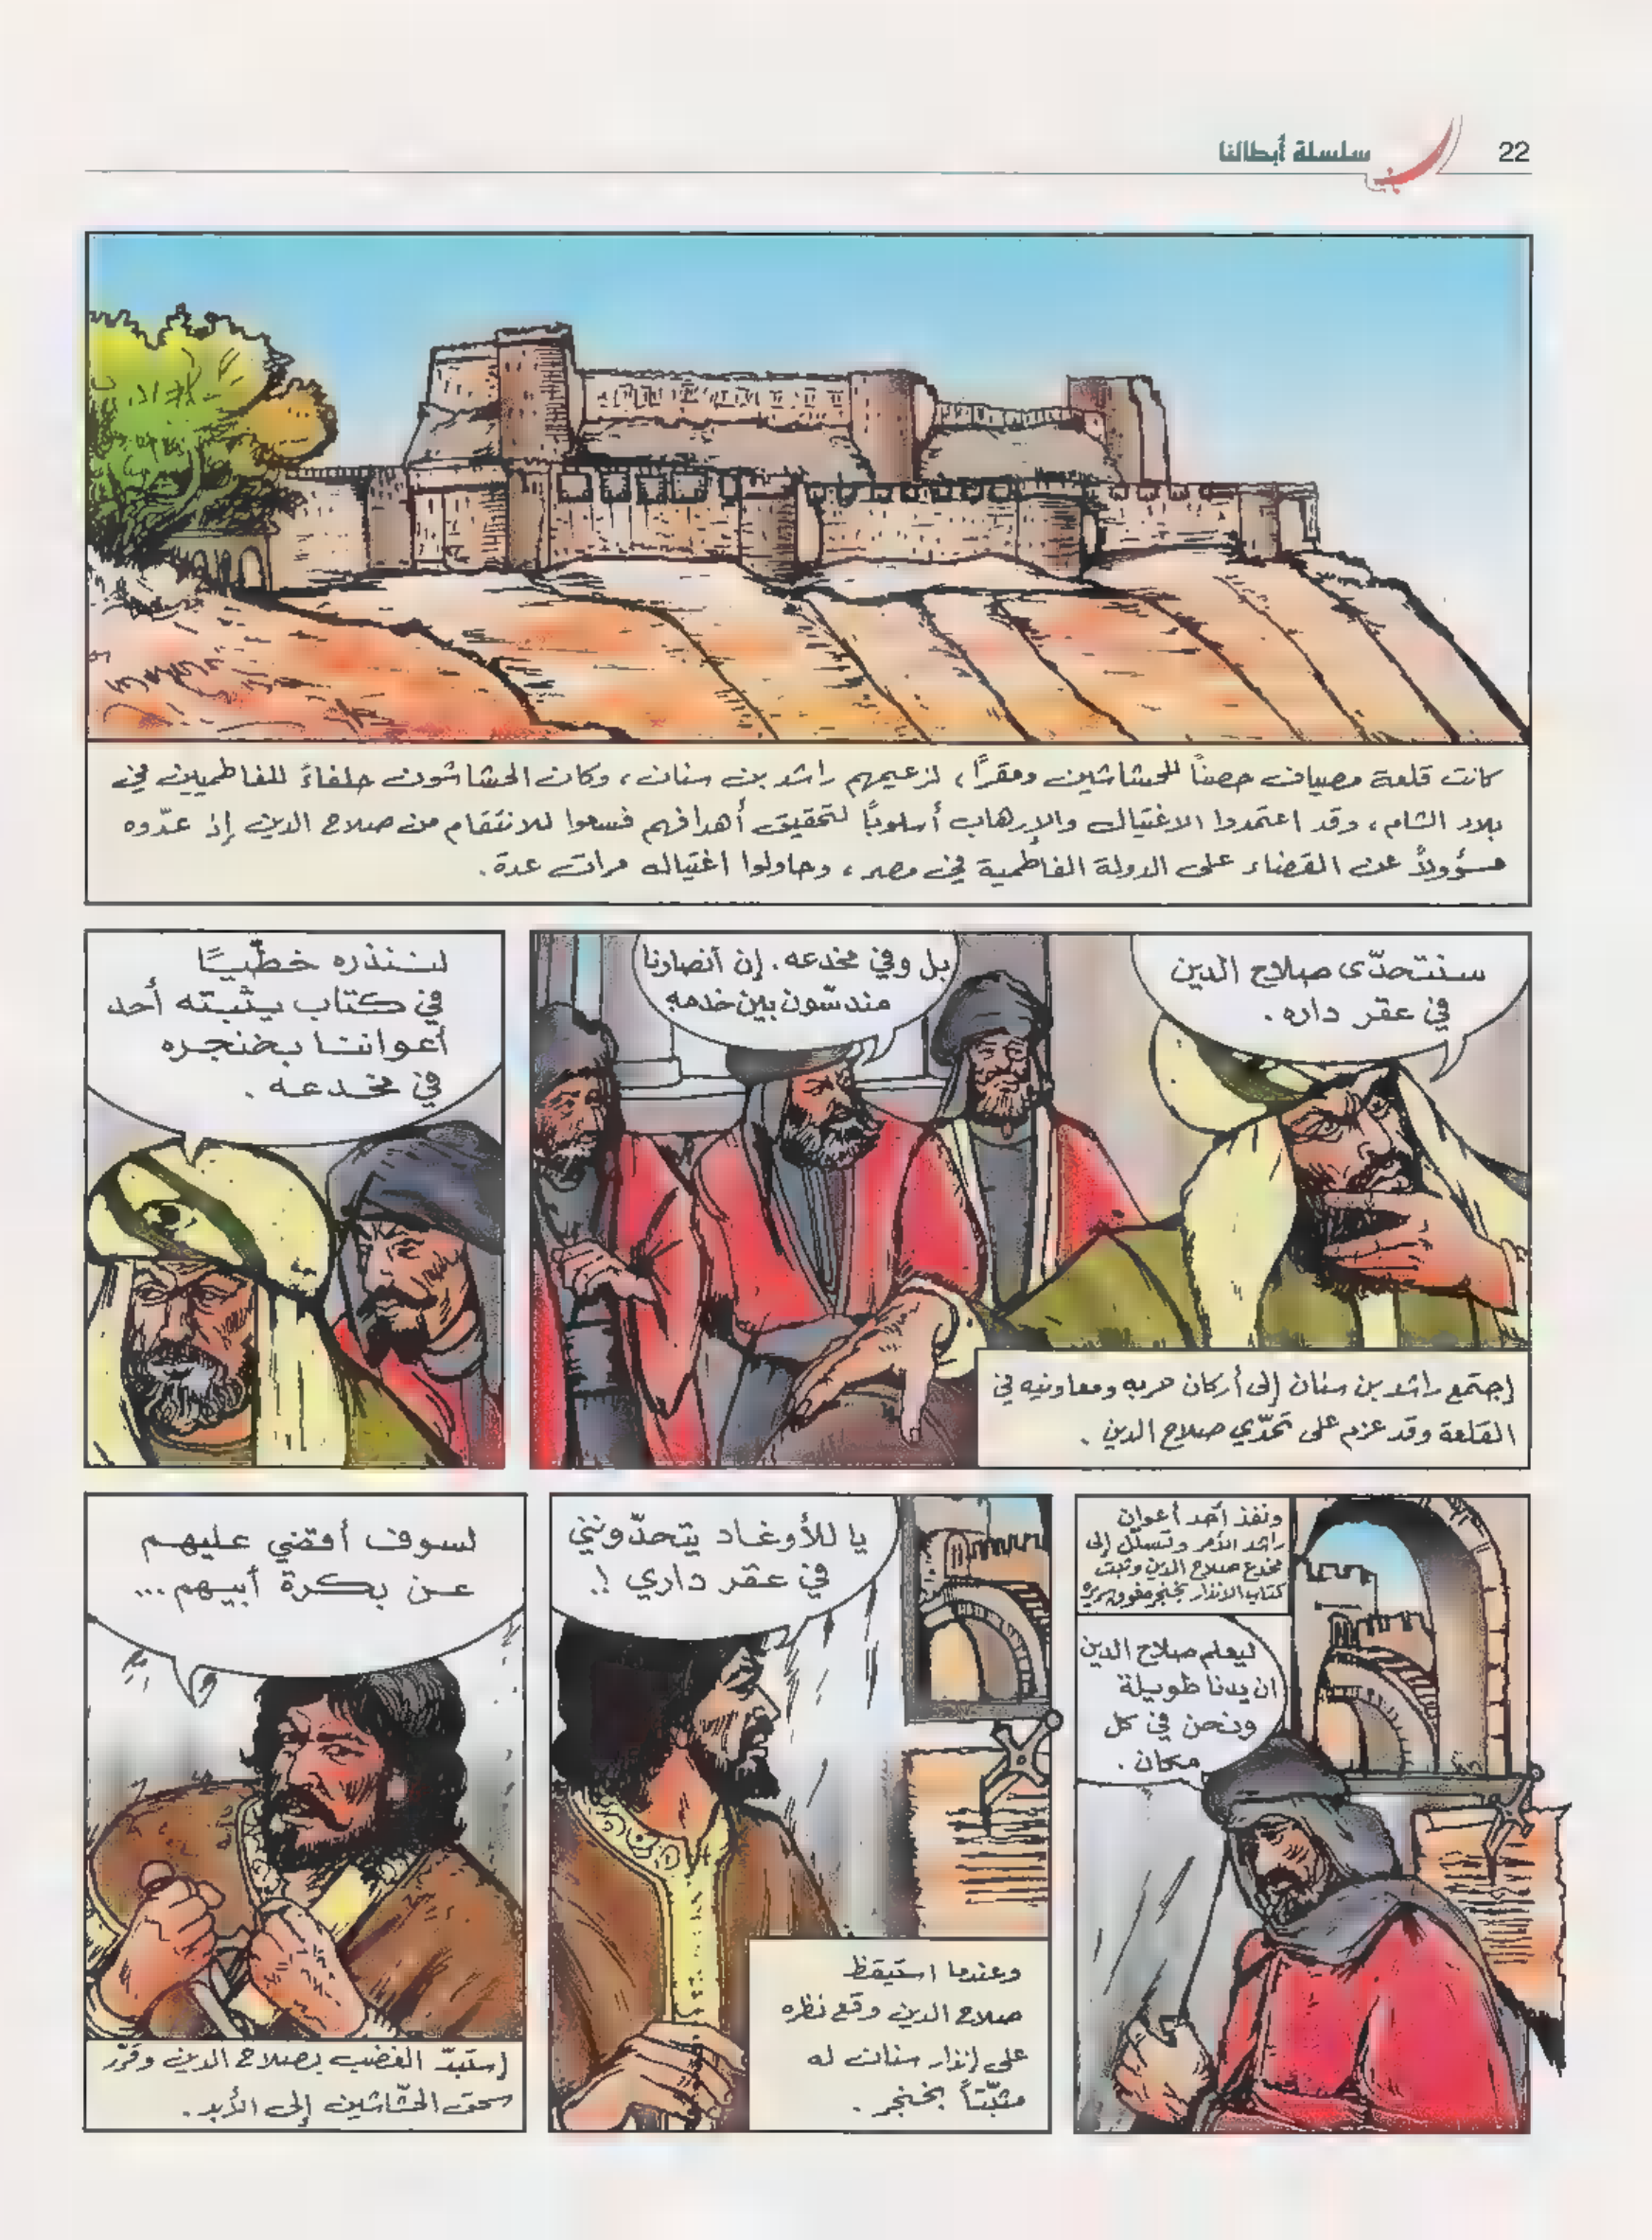 22
سلسلة أبطالنا
كانت قلعة مصياف حصناً للحشاشين ومقرّاً، لزعيمهم راشد بن سنان، وكان الحشاشون حلفاءَ للفاطميين في
بلاد الشام، وقد اعتمدوا الاغتيال والإرهاب أسلوباً لتحقيق أهدافهم فسعوا للانتقام من صلاح الدين إذ عدّوه
مسؤولاً عن القضاء على الدولة الفاطمية في مصر، وحاولوا اغتياله مرات عدة.
سنتحدّى صلاح الدين
في عقر داره.
بل وفي مخدعه. إن أنصارنا
مندسّون بين خدمه
إجتمع راشد بن سنان إلى أركان حربه ومعاونيه في
القلعة وقد عزم على تحدّي صلاح الدين.
لننذره خطّيًا
في كتاب يثبته أحد
أعواننا بخنجره
في مخدعه.
ونفذ أحد أعوان
راشد الأمر وتسلّل إلى
مخدع صلاح الدين وثبّت
كتاب الانذار بخنجر فوق سريره
ليعلم صلاح الدين
ان يدنا طويلة
ونحن في كل
مكان.
يا للأوغاد يتحدّونني
في عقر داري !.
وعندما استيقظ
صلاح الدين وقع نظره
على إنذار سنان له
مثبّتاً بخنجر.
لسوف أقضي عليهم
عن بكرة أبيهم...
إستبدّ الغضب بصلاح الدين وقرّر
سحق الحشّاشين إلى الأبد.